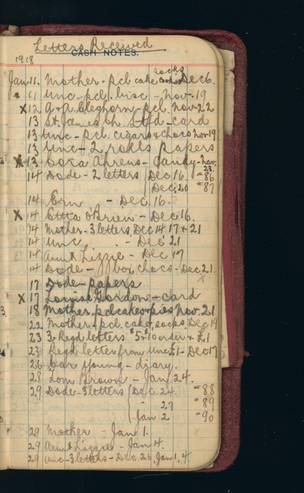 Letters Received
CASH NOTES.
1918
Jan 11. Mother - pcl cake socks Dec 6.
" 11 Unc - pcl. misc - Nov. 19
X 12 pcl. Nov 22
13 St. James ch. - card
13 Unc - pcl. cigars & chocs Nov 19
13 Unc - 2 rolls papers
X 13 Dora Ahrens - candy - Nov. 23.
14 Dode - 2 letters Dec 16. - 86
Dec 20 - 87
14 Ern - Dec 16.
X 14 Etta O'Brien - Dec 16.
14 Mother - 3 letters Dec 14 17 & 21
14 Unc - Dec 21
14 Aunt Lizzie - Dec 17
14 Dode - box chocs - Dec 21.
17 Dode - papers
X 17 Louise Gordon - card
18 Mother - pcl cake pies Nov. 21
22 Mother - pcl cake, socks Dec 14
23 3 Regd letters $5 - 10 order & £1
23 Regd letter from Unc £1 - Dec 17
26 Young - diary.
28 Tom Brown - Jan 24.
29 Dode - 3 letters Dec 24 - 88
" 27 - 89
Jan 2 - 90
29 Mother - Jan 1.
29 Aunt Lizzie - Jan 4.
29 Unc - 3 letters - Dec. 26, Jan 1, 4.